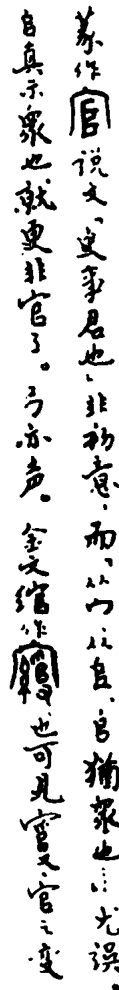 篆作官说文「吏事君也」非初意，而「从宀从𠂤，𠂤犹众也…尤误。
𠂤真示众也，就更非官了。弓亦声。金文绾作，也可见官之变